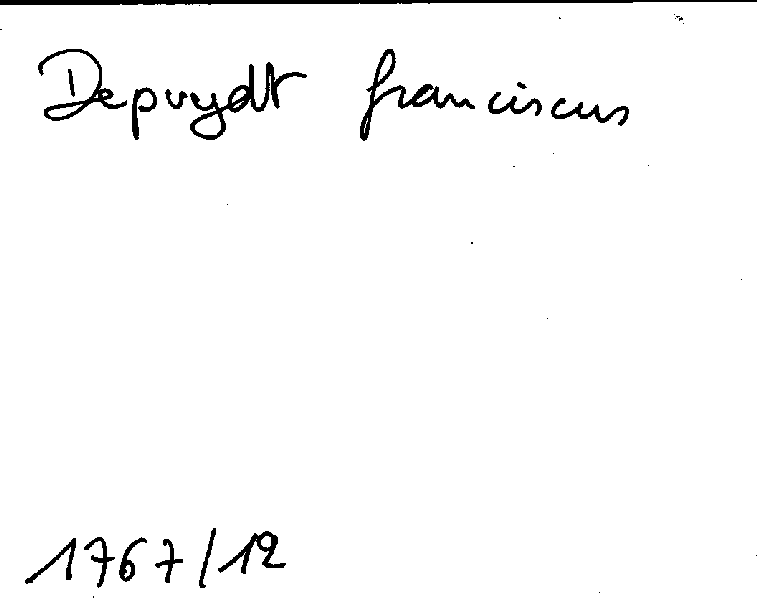 Depuydt franciscus
1767/12